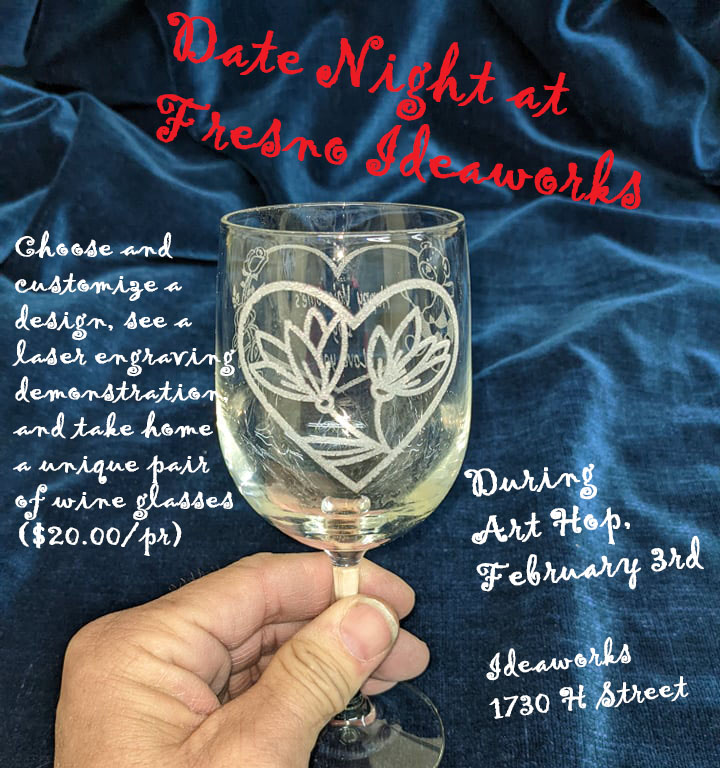 Date Night at
Fresno Ideaworks
Choose and
customize a
design, see a
laser engraving
demonstration,
and take home
a unique pair
of wine glasses
($20.00/pr)
During
Art Hop,
February 3rd
Ideaworks
1730 H Street